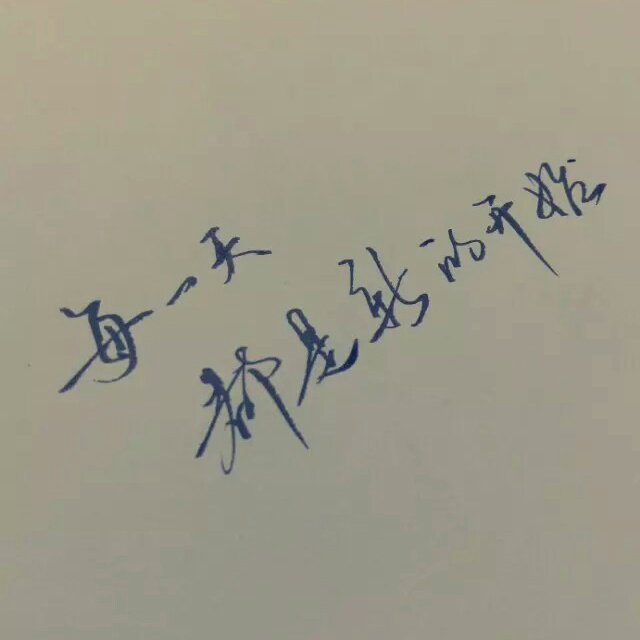 每一天
都是新的开始